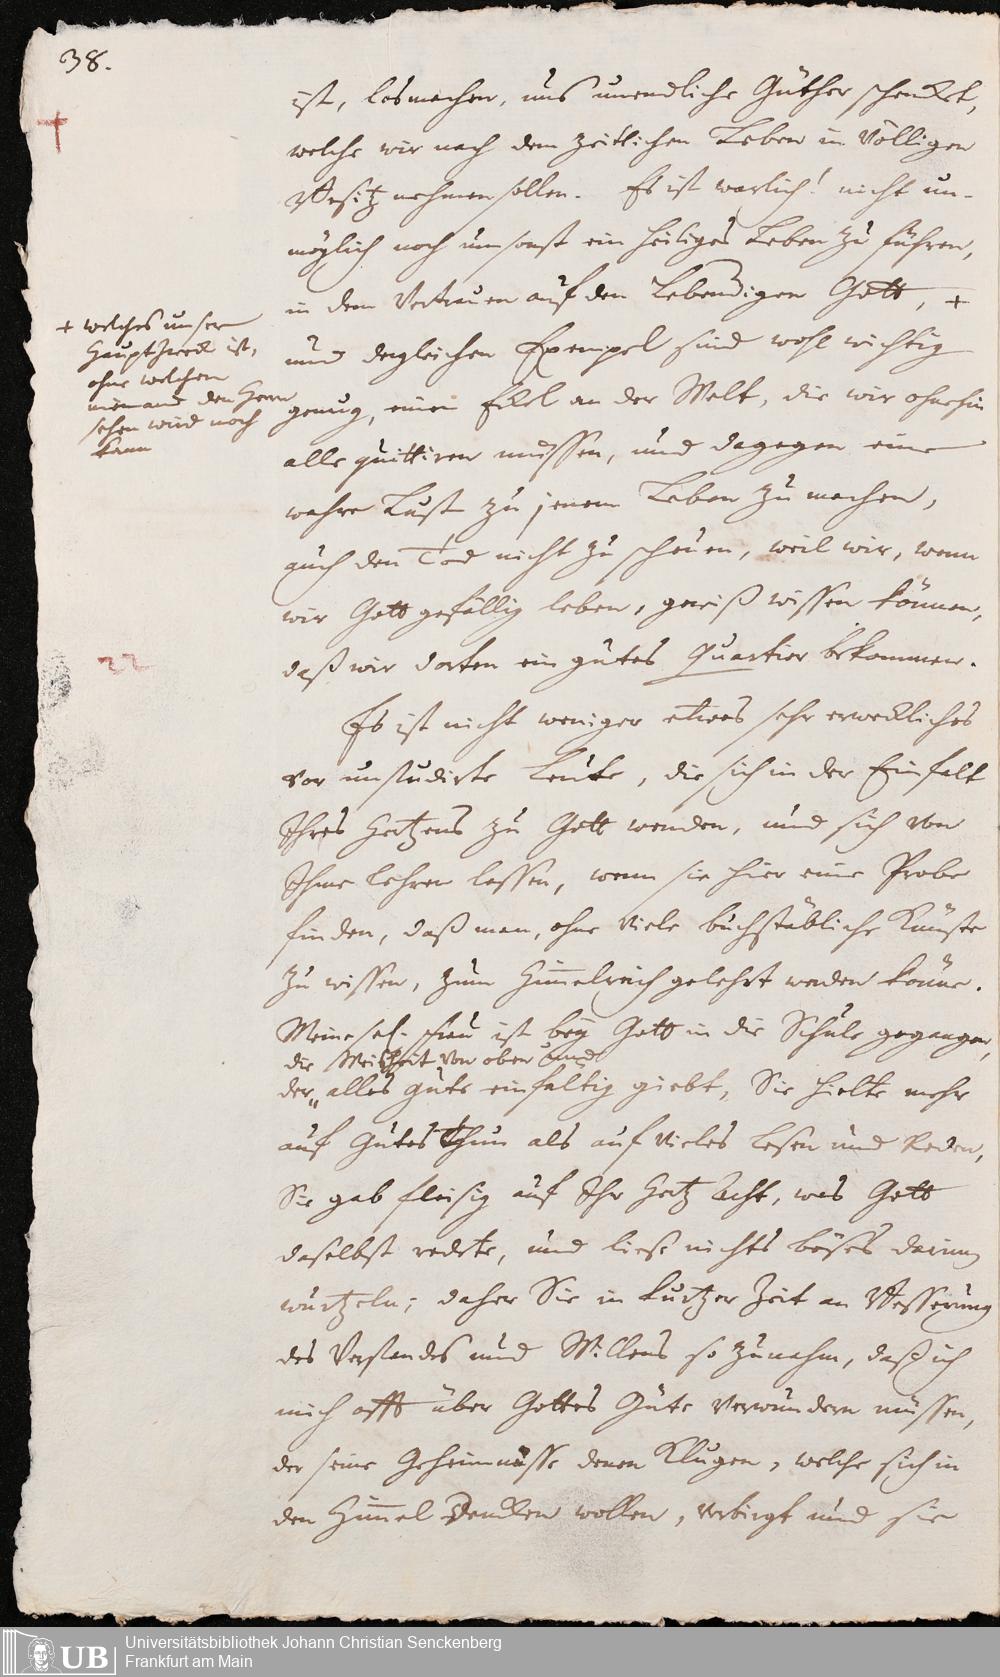 38.
ist, losmachen, uns unendliche Güther schencket,
welche wir nach dem zeitlichen Leben in Völligen
Besitz nehmen sollen. Es ist warlich! nicht un-
möglich noch umsonst ein heiliges Leben zu führen,
in dem Vertrauen auf den Lebendigen Gott, +
+ welches unser
Hauptzweck ist,
ohne welchen
niemand den Herrn
sehen wird noch
kann
und dergleichen Exempel sind wohl wichtig
genug, einen Ekel an der Welt, die wir ohnehin
alle quittiren müssen, und dagegen eine
wahre Lust zu jenem Leben zu machen,
auch den Tod nicht zu scheuen, weil wir, wenn
wir Gott gefällig leben, gewiß wissen können,
daß wir dorten ein gutes Quartier bekommen.
22
Es ist nicht weniger etwas sehr erweckliches
vor unstudirte Leute, die sich in der Einfalt
Ihres Hertzens zu Gott wenden, und sich von
Ihme lehren lassen, wenn sie hier eine Probe
finden, daß man, ohne viele buchstäbliche Künste
zu wissen, zum Himelreich gelehrt werden könne.
Meine sel. Frau ist bey Gott in die Schule gegangen,
die Weißheit von oben und
der alles gute einfältig giebt, Sie hielte mehr
auf Gutes Thun als auf vieles Lesen und Reden,
Sie gab fleisig auf Ihr Hertz Acht, was Gott
daselbst redete, und liese nichts böses darinn
wurtzeln; daher Sie in kurtzer Zeit an Besserung
des Verstandes und Willens so zunahm, daß ich
mich offt über Gottes Güte verwundern müssen,
der seine Geheimnüsse denen Klugen, welche sich in
den Himel Dencken wollen, verbirgt und sie
UB
Universitätsbibliothek Johann Christian Senckenberg
Frankfurt am Main